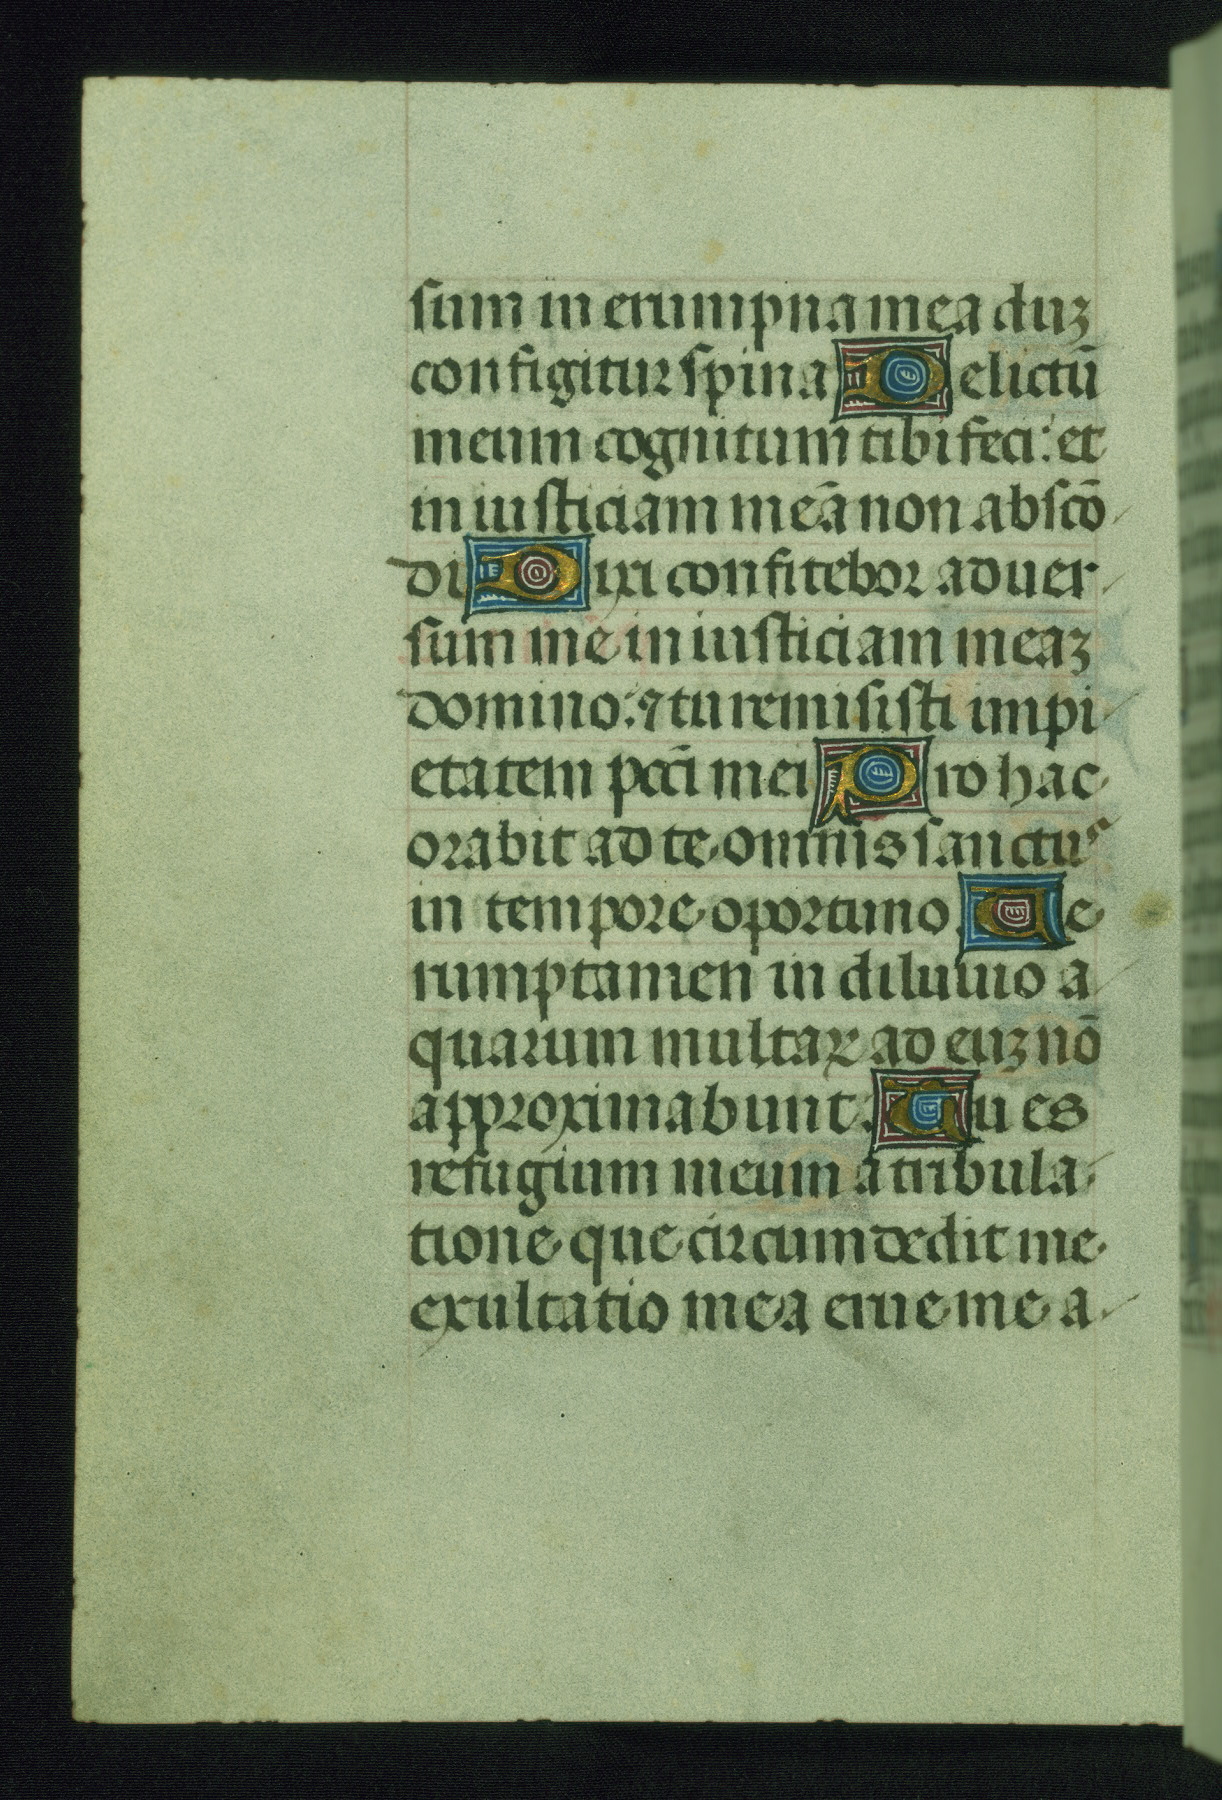 sum in erumpna mea duꝫ
configitur spina Delictū
meum cognitum tibi feci: et
in iusticiam meā non abscō
di Dixi confitebor aduer
sum me in iusticiam meaꝫ
domino: ⁊ tu remisisti impi
etatem pcc̄i mei Pro hac
orabit ad te omnis sanctus
in tempore oportuno. Ue
rumptamen in diluuio a
quarum multaꝝ ad euꝫ nō
approximabunt. Tu es
refugium meum a tribula
tione que circumdedit me
exultatio mea erue me a